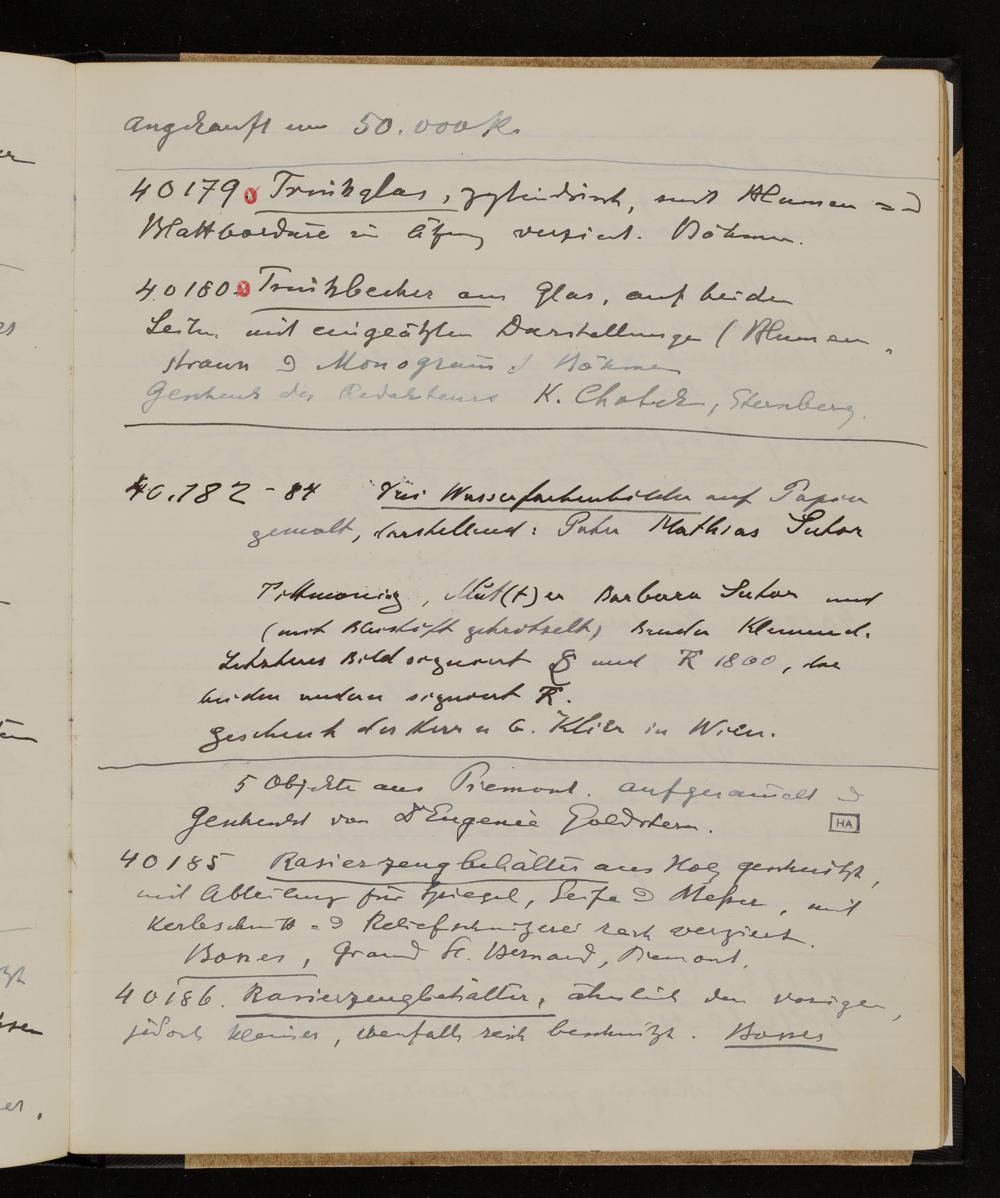 Angekauft um 50.000 K.
40179 Trinkglas, zylindrisch, mit Blumen =
Blattbordüre in Ätzung verziert. Böhmen.
40180 Trinkbecher aus Glas, auf beiden
Seiten mit eingeätzten Darstellungen (Blumen,
strauss & Monogramm) Böhmen
Geschenk des Redakteurs K. Chotek, Sternberg.
40.182-84 Drei Wasserfarbenbilder auf Papier
gemalt, darstellend: Pater Mathias Sutor
Tittmoning, Mut(t)er Barbara Sutor und
(mit Bleistift gekrötzelt) Bruder Klemend.
Letzteres Bild signiert und K 1800, die
beiden andern signiert K.
Geschenk des Herrn G. Klier in Wien.
5 Objekte aus Piemont. aufgesammelt &
Geschenkt von Dr Eugenie Goldstern.
HA
40185 Rasierzeugbehälter aus Holz geschnitzt,
mit Abteilung für Spiegel, Seife & Messer, mit
Kerbschnitt = & Reliefschnitzerei reich verziert.
Bosses, Grand St. Bernard, Piemont.
40186. Rasierzeugbehälter, ähnlich dem vorigen,
jedoch kleiner, ebenfalls reich beschnitzt. Bosses